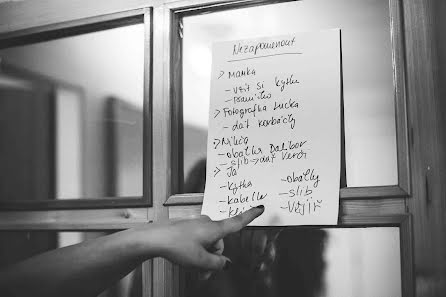 Nezapomenout
> Mamka
- vzít si kytku
- psaníčko
> Fotografka Lucka
- dát korbáčíky
> Nikča
- obálku Dalibor
- slib → dát Verči
> Já
- kytka
- kabelka
- obálky
- slib
- Vějíř